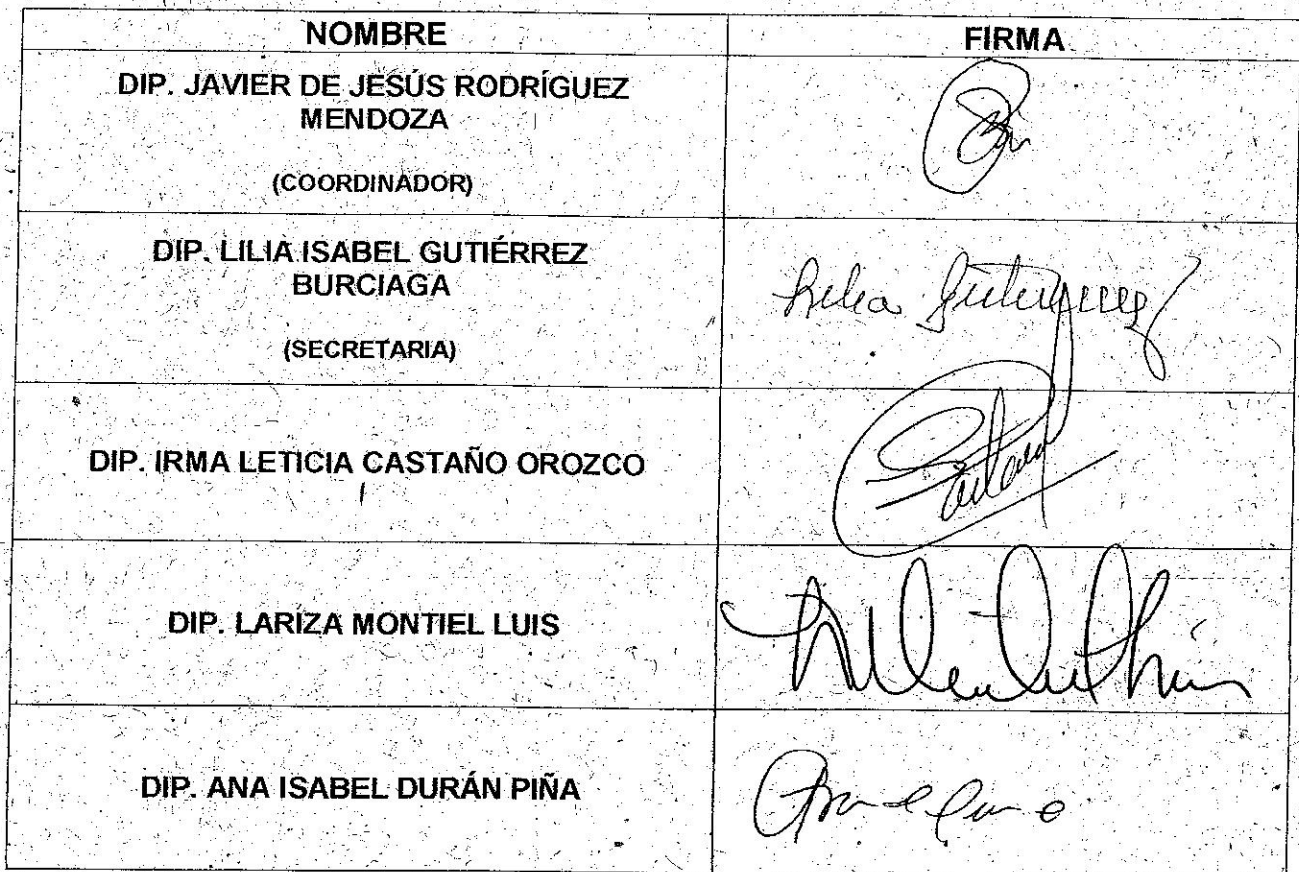 NOMBRE FIRMA
DIP. JAVIER DE JESÚS RODRÍGUEZ
MENDOZA
(COORDINADOR)
DIP. LILIA ISABEL GUTIÉRREZ
BURCIAGA
Lilia Gutierrez
(SECRETARIA)
DIP. IRMA LETICIA CASTAÑO OROZCO
DIP. LARIZA MONTIEL LUIS
DIP. ANA ISABEL DURÁN PIÑA